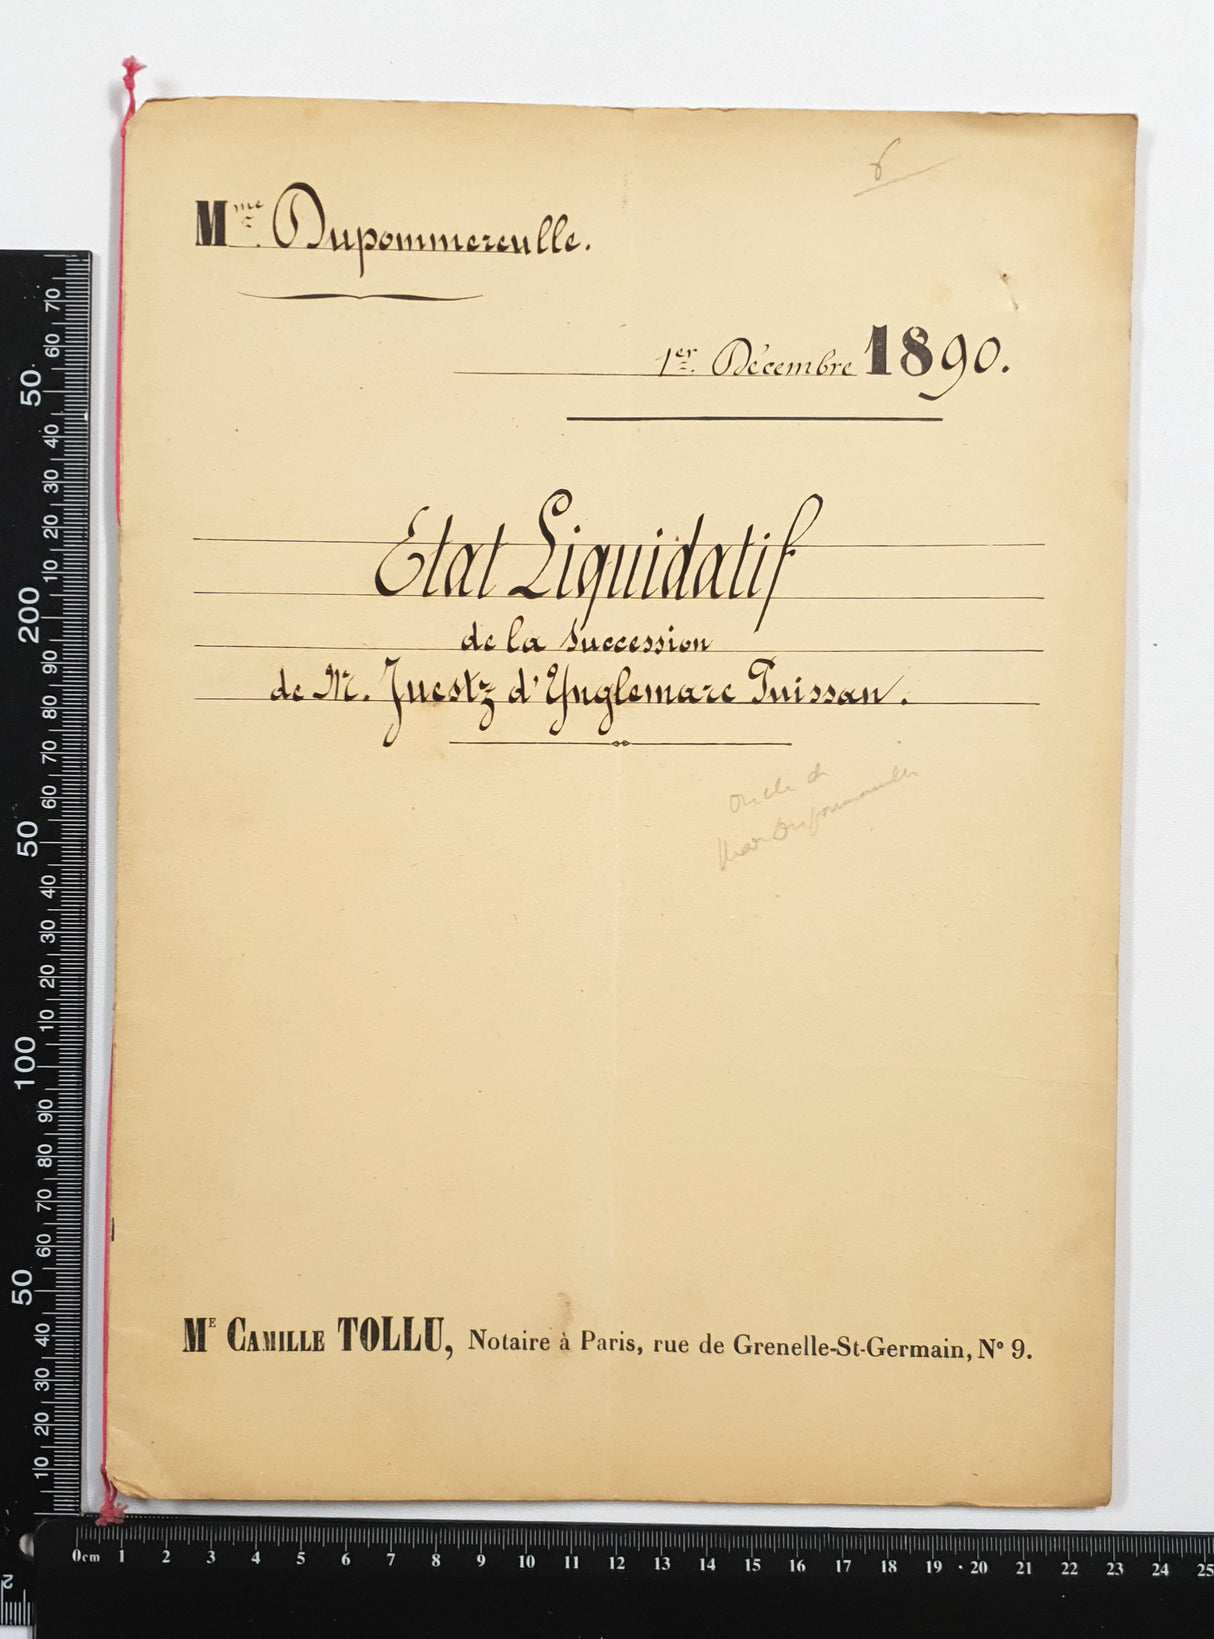 6
Mme Dupommereulle.
1er Décembre 1890.
Etat Liquidatif
de la succession
de Mr. Juestz d'Ynglemare Puissan.
oncle de
Dupommereulle
Me CAMILLE TOLLU, Notaire à Paris, rue de Grenelle-St-Germain, No 9.
70
60
50
40
30
20
10
200
90
80
70
60
50
40
30
20
10
100
90
80
70
60
50
40
30
20
10
0cm 1 2 3 4 5 6 7 8 9 10 11 12 13 14 15 16 17 18 19 20 21 22 23 24 25
2